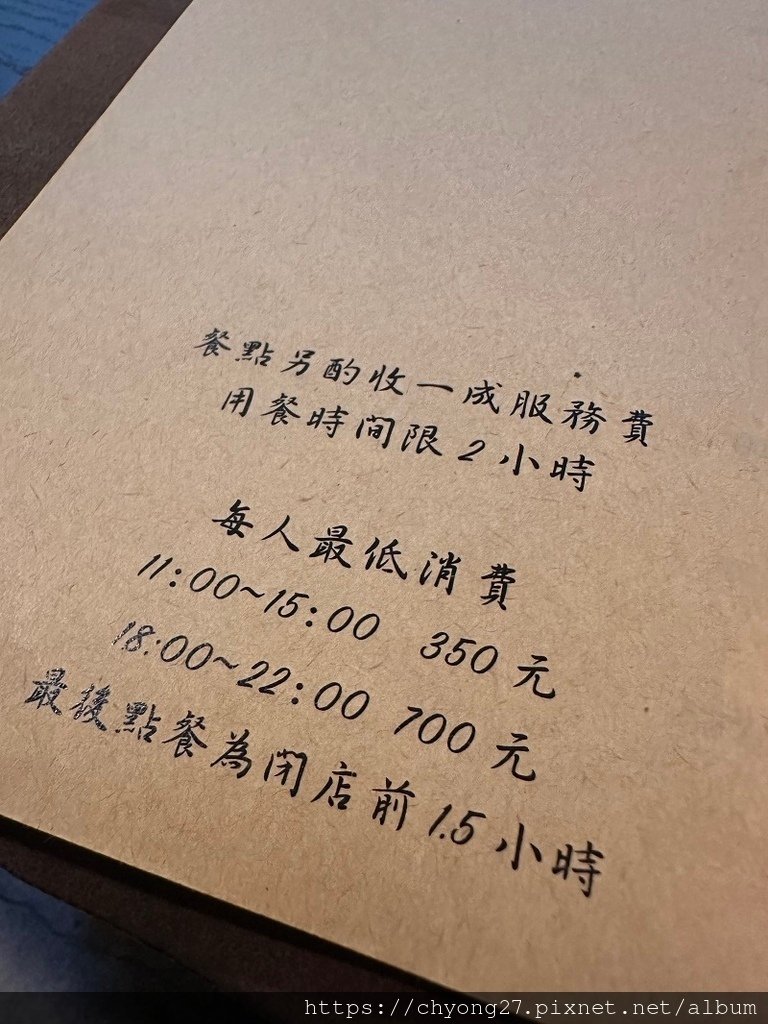 餐點另酌收一成服務費
用餐時間限2小時
每人最低消費
11:00~15:00 350元
18:00~22:00 700元
最後點餐為閉店前1.5小時
https://chyong27.pixnet.net/album